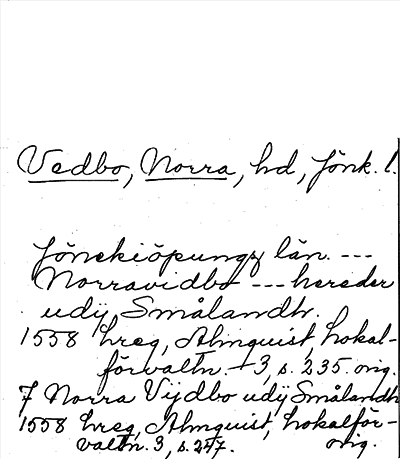 Vedbo, Norra, hd, Jönk. l.
Jönekiöpungz län. ---
Norravidbo --- hereder
udij Smålandh.
1558 hreg, Almquist, Lokal-
förvaltn. 3, s. 235. orig.
7 Norra Vijdbo udij Smålandh
1558 hreg, Almquist, Lokalför-
valtn. 3, s. 247. orig.